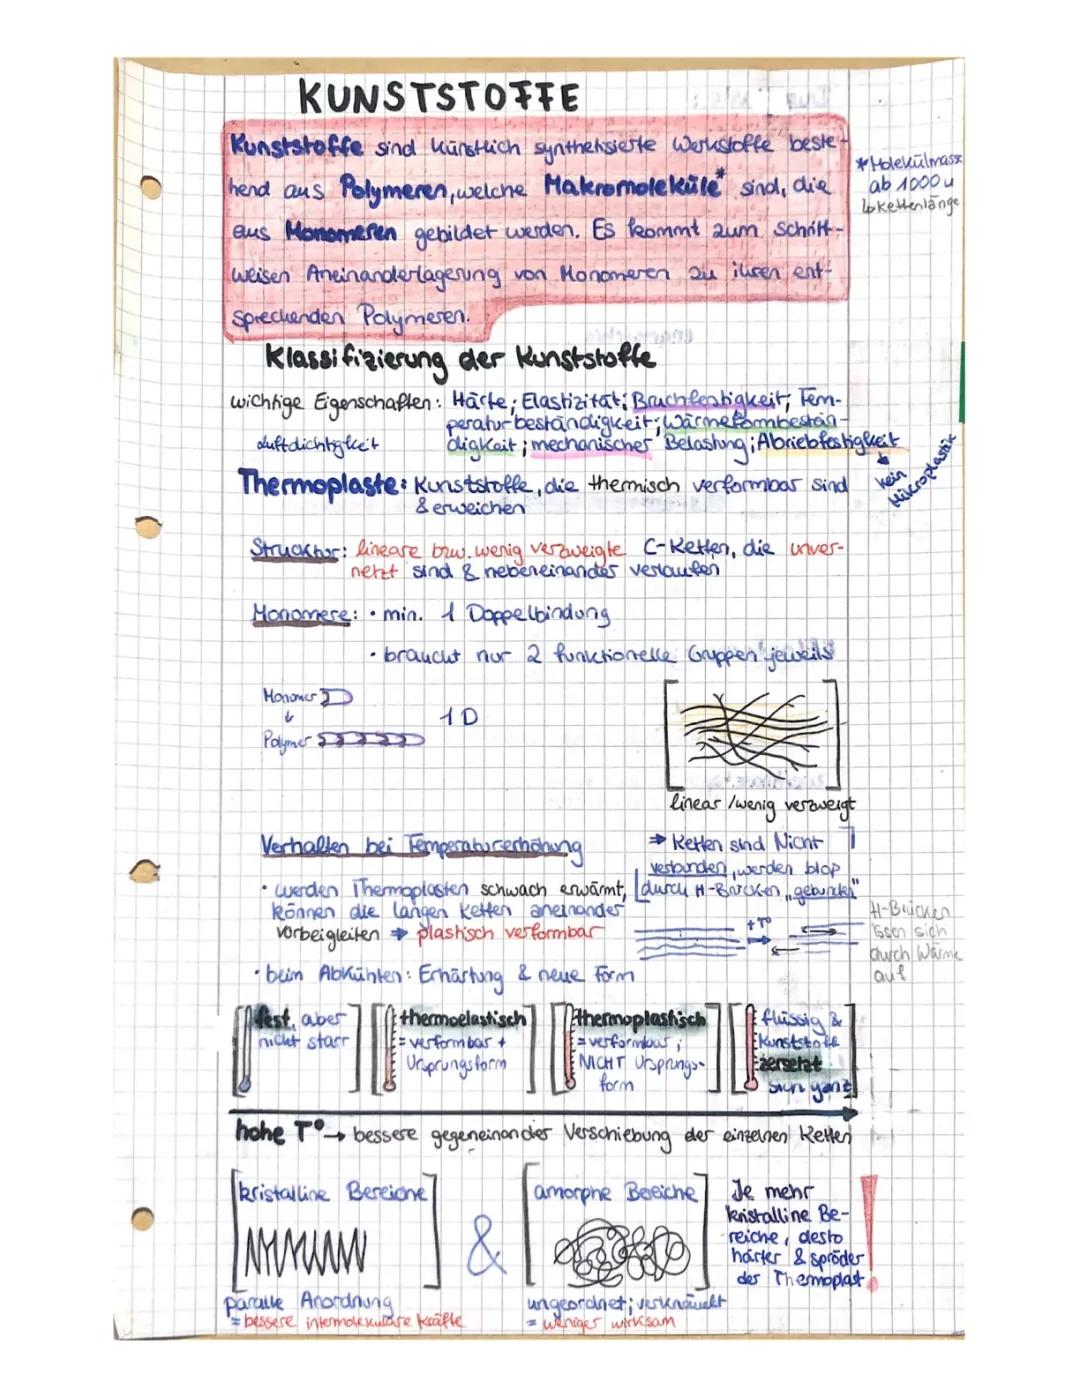 KUNSTSTOFFE
Kunststoffe sind künstlich synthetisierte Werkstoffe beste-
hend aus Polymeren, welche Makromoleküle* sind, die
aus Monomeren gebildet werden. Es kommt zum Schritt-
weisen Aneinanderlagerung von Monomeren zu ihren ent-
sprechenden Polymeren.
*Molekülmasse
ab 1000 u
↳ Kettenlänge
Klassifizierung der Kunststoffe
wichtige Eigenschaften: Härte; Elastizität; Bruchfestigkeit; Tem-
peraturbeständigkeit; Wärmeformbestän-
luftdichtigkeit digkeit; mechanischer Belastung; Abriebfestigkeit
↓
kein
Mikroplastik
Thermoplaste: Kunststoffe, die thermisch verformbar sind
& erweichen
Struktur: lineare bzw. wenig verzweigte C-Ketten, die unver-
netzt sind & nebeneinander verlaufen
Monomere: • min. 1 Doppelbindung
• braucht nur 2 funktionelle Gruppen jeweils
Monomer
↓
Polymer
1D
linear / wenig verzweigt
⇒ Ketten sind Nicht
verbunden, werden bloß
durch H-Brücken „gebunden"
Verhalten bei Temperaturerhöhung
• werden Thermoplasten schwach erwärmt,
können die langen Ketten aneinander
vorbeigleiten → plastisch verformbar
• beim Abkühlen: Erhärtung & neue Form
+T°
H-Brücken
lösen sich
durch Wärme
auf
fest, aber
nicht starr
thermoelastisch
= verformbar +
Ursprungsform
thermoplastisch
= verformbar;
NICHT Ursprungs-
form
flüssig &
Kunststoffe
zersetzt
sich ganz
hohe T° → bessere gegeneinander Verschiebung der einzelnen Ketten
kristalline Bereiche
&
amorphe Bereiche
Je mehr
kristalline Be-
reiche, desto
härter & spröder
der Thermoplast
!
paralle Anordnung
= bessere intermolekulare Kräfte
ungeordnet; verknäuelt
= weniger wirksam